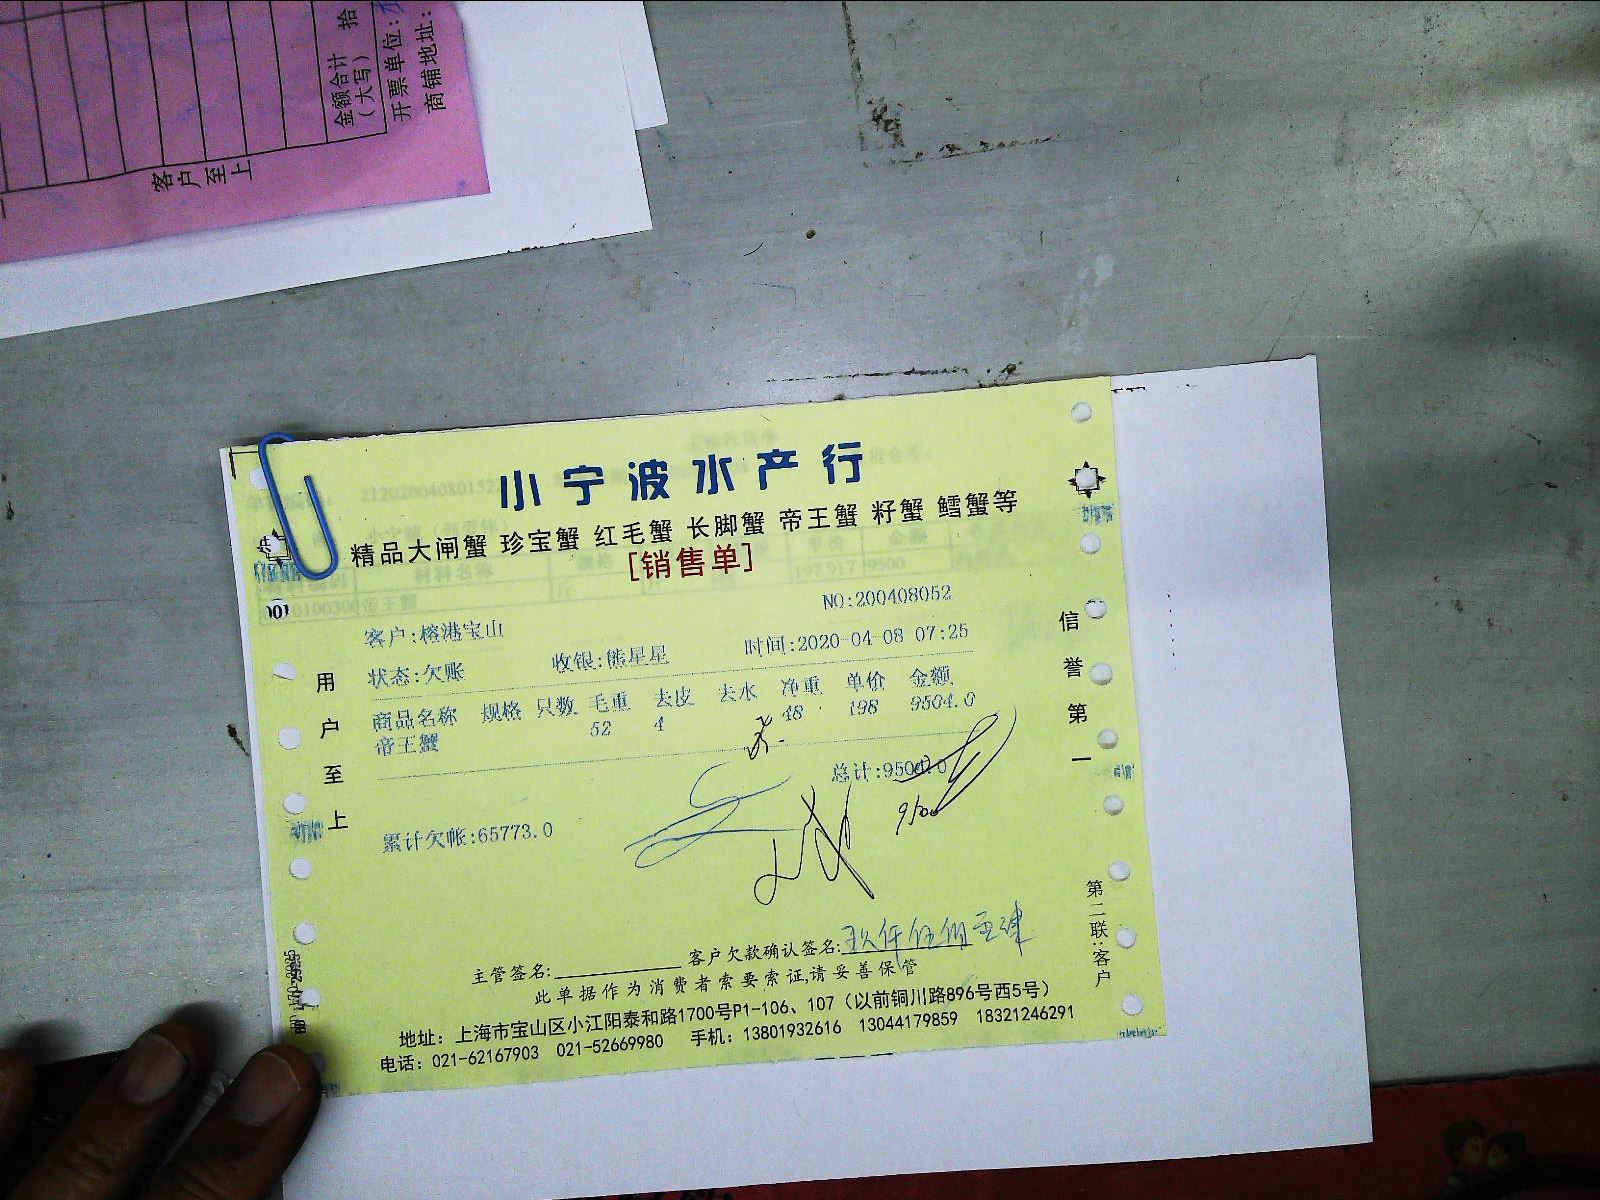 金额合计 拾
(大写)
开票单位:
商铺地址:
客户至上
小宁波水产行
精品大闸蟹 珍宝蟹 红毛蟹 长脚蟹 帝王蟹 籽蟹 鳕蟹等
[销售单]
NO:200408052
客户:榕港宝山
状态:欠账 收银:熊星星 时间:2020-04-08 07:25
商品名称 规格 只数 毛重 去皮 去水 净重 单价 金额
帝王蟹 52 4 48 198 9504.0
总计:9504.0
9500
累计欠帐:65773.0
主管签名: 客户欠款确认签名:玖仟伍佰
此单据作为消费者索要索证,请妥善保管
地址：上海市宝山区小江阳泰和路1700号P1-106、107（以前铜川路896号西5号）
电话：021-62167903 021-52669980 手机：13801932616 13044179859 18321246291
用户至上
信誉第一
第二联:客户
21202004080152
材料名称
单价 金额
帝王蟹 斤 197.917 9500